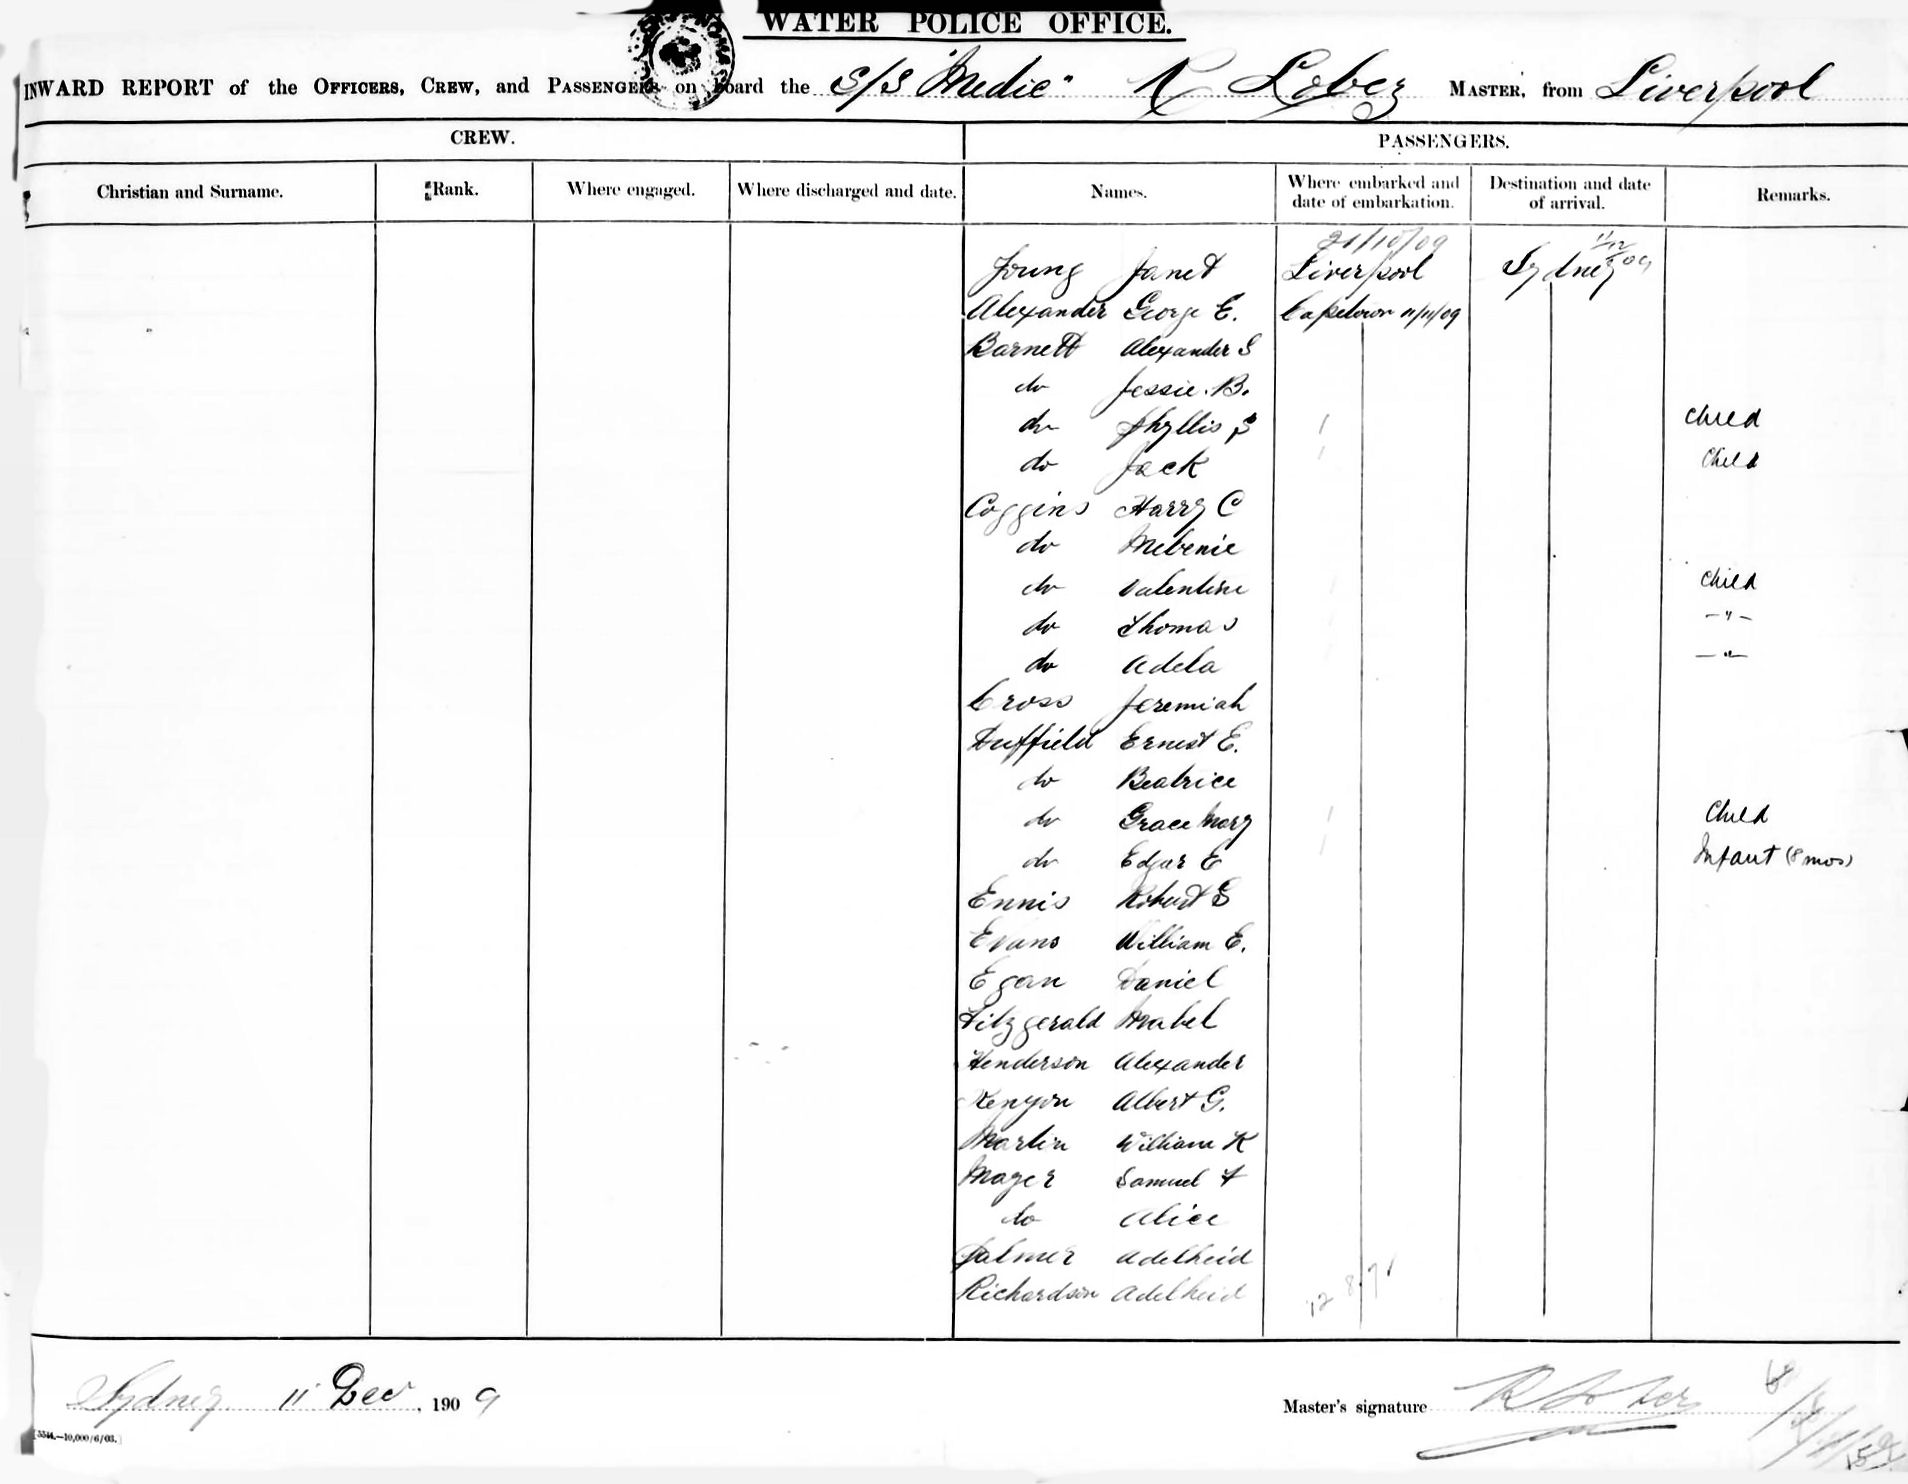 WATER POLICE OFFICE.
INWARD REPORT of the OFFICERS, CREW, and PASSENGERS on board the S/S "Medic" R Lobez MASTER, from Liverpool
CREW. PASSENGERS.
Christian and Surname. Rank. Where engaged. Where discharged and date. Names. Where embarked and date of embarkation. Destination and date of arrival. Remarks.
21/10/09 11/12/09
Young Janet Liverpool Sydney
Alexander George E. Capetown 11/11/09
Barnett Alexander S
do Jessie. B.
do Phyllis S Child
do Jack Child
Coggins Harry C
do Mebenie
do Valentine Child
do Thomas -"-
do Adela -"-
Cross Jeremiah
Duffield Ernest E.
do Beatrice
do Grace Mary Child
do Edgar E Infant (8 mos)
Ennis Robert G
Evans William E.
Egan Daniel
Fitzgerald Mabel
Henderson Alexander
Kenyon Albert G.
Martin William K
Mayer Samuel F
do Alice
Palmer Adelheid
Richardson Adelheid
Sydney 11 Dec , 1909 Master's signature
[5544.—10,000/6/03.]